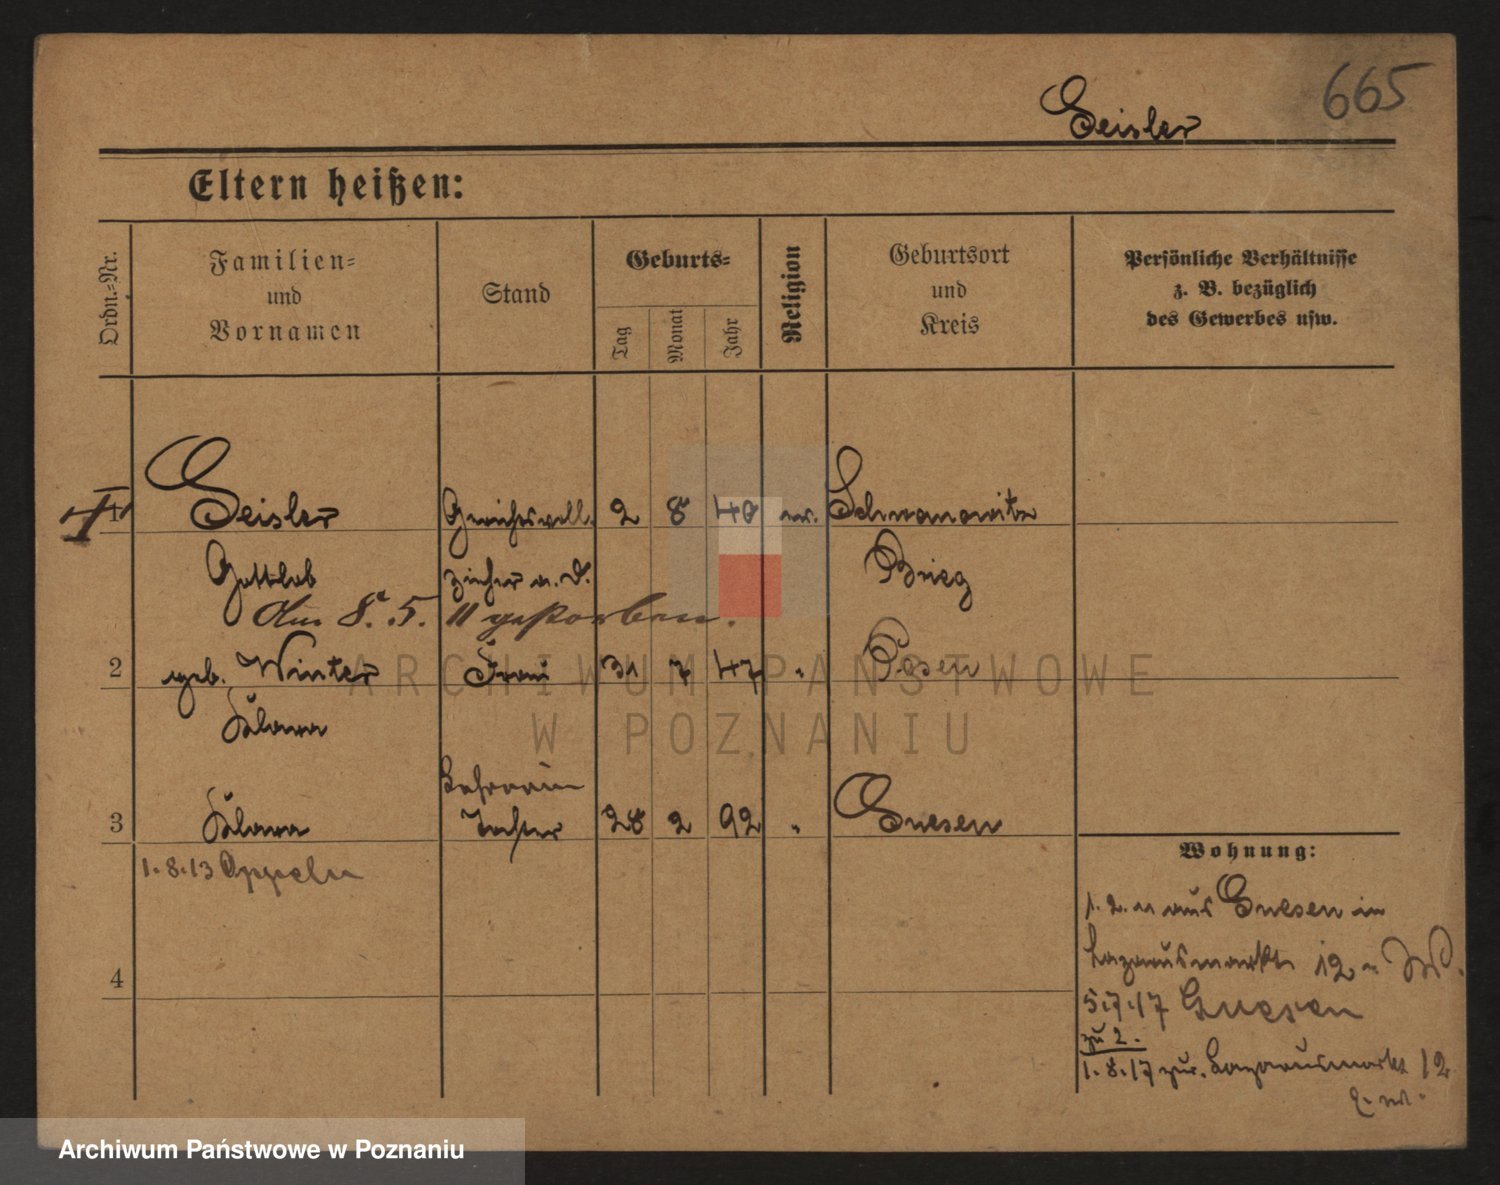 665
Geisler
Eltern heißen:
Ordn.-Nr.
Familien-
und
Vornamen
Stand
Geburts-
Tag
Monat
Jahr
Religion
Geburtsort
und
Kreis
Persönliche Verhältnisse
z. B. bezüglich
des Gewerbes usw.
1 Geisler Gerichtsvoll- 2 8 40 ev. Schwanowitz
Gottlob zieher a. D. Brieg
Am 8.5.11 gestorben.
2 geb. Winter Frau 31 7 47 " Posen
Klara
Lehrerin
3 Klara Tochter 28 2 92 " Gnesen
1.8.13 Oppeln
4
Wohnung:
1.2.11 aus Gnesen in
Lazarusmarkt 12
5.7.17 Gnesen
zu 2.
1.8.17 zur. Lazarusmarkt 12
ARCHIWUM PAŃSTWOWE
W POZNANIU
Archiwum Państwowe w Poznaniu